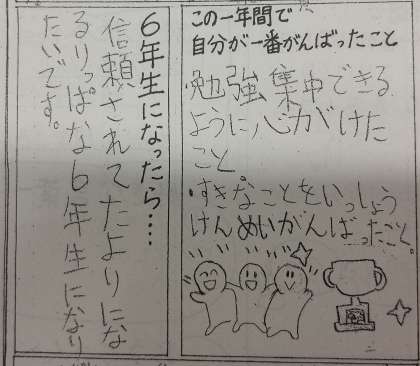 この一年間で
自分が一番がんばったこと
勉強集中できる
ように、心がけた
こと
・すきなことをいっしょう
けんめいがんばったこと。
6年生になったら‥‥
信頼されてたよりにな
るりっぱな6年生になり
たいです。